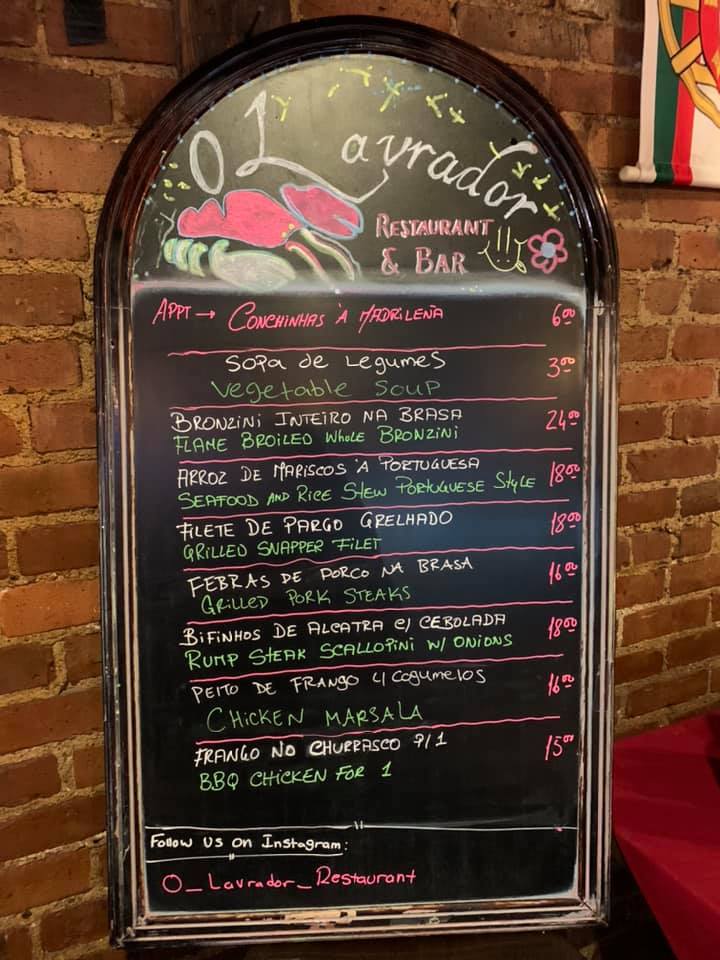 O Lavrador
RESTAURANT
& BAR
APPT → CONCHINHAS À MADRILEÑA 6.00
SOPA DE LEGUMES 3.00
VEGETABLE SOUP
BRONZINI INTEIRO NA BRASA 24.00
FLAME BROILED WHOLE BRONZINI
ARROZ DE MARISCOS À PORTUGUESA 18.00
SEAFOOD AND RICE STEW PORTUGUESE STYLE
FILETE DE PARGO GRELHADO 18.00
GRILLED SNAPPER FILET
FEBRAS DE PORCO NA BRASA 16.00
GRILLED PORK STEAKS
BIFINHOS DE ALCATRA C/ CEBOLADA 18.00
RUMP STEAK SCALLOPINI W/ ONIONS
PEITO DE FRANGO C/ COGUMELOS 16.00
CHICKEN MARSALA
FRANGO NO CHURRASCO P/1 15.00
BBQ CHICKEN FOR 1
Follow US On Instagram:
O_Lavrador_Restaurant